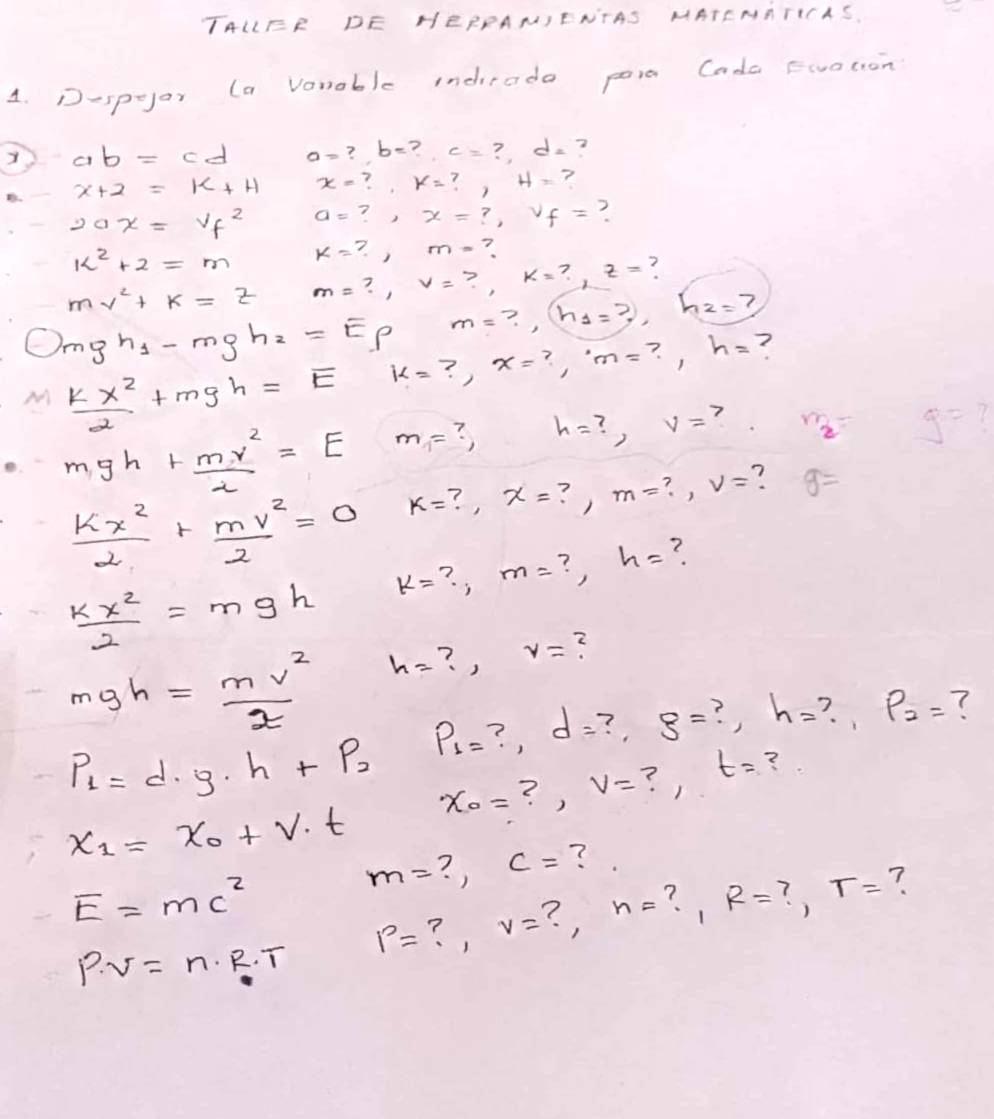 TALLER DE HERRAMIENTAS MATEMÁTICAS.
1. Despejar la Variable indicada para Cada Ecuación
ab = cd a=? b=? c=?, d=?
x+2 = K+H x=?, K=?, H=?
2ax = Vf² a=?, x=?, Vf=?
K²+2 = m K=?, m=?
mv²+K = Z m=?, v=?, K=?, z=?
mgh₁ - mgh₂ = Ep m=?, h₁=?, h₂=?
Kx²/2 + mgh = E K=?, x=?, m=?, h=?
mgh + mv²/2 = E m=?, h=?, v=?. m₂= g=?
Kx²/2 + mv²/2 = 0 K=?, x=?, m=?, v=? g=
Kx²/2 = mgh K=?, m=?, h=?
mgh = mv²/2 h=?, v=?
P₁= d.g.h + P₂ P₁=?, d=?, g=?, h=?, P₂=?
X₁= X₀ + V.t X₀=?, V=?, t=?.
E = mc² m=?, C=?.
P.V= n.R.T P=?, v=?, n=?, R=?, T=?